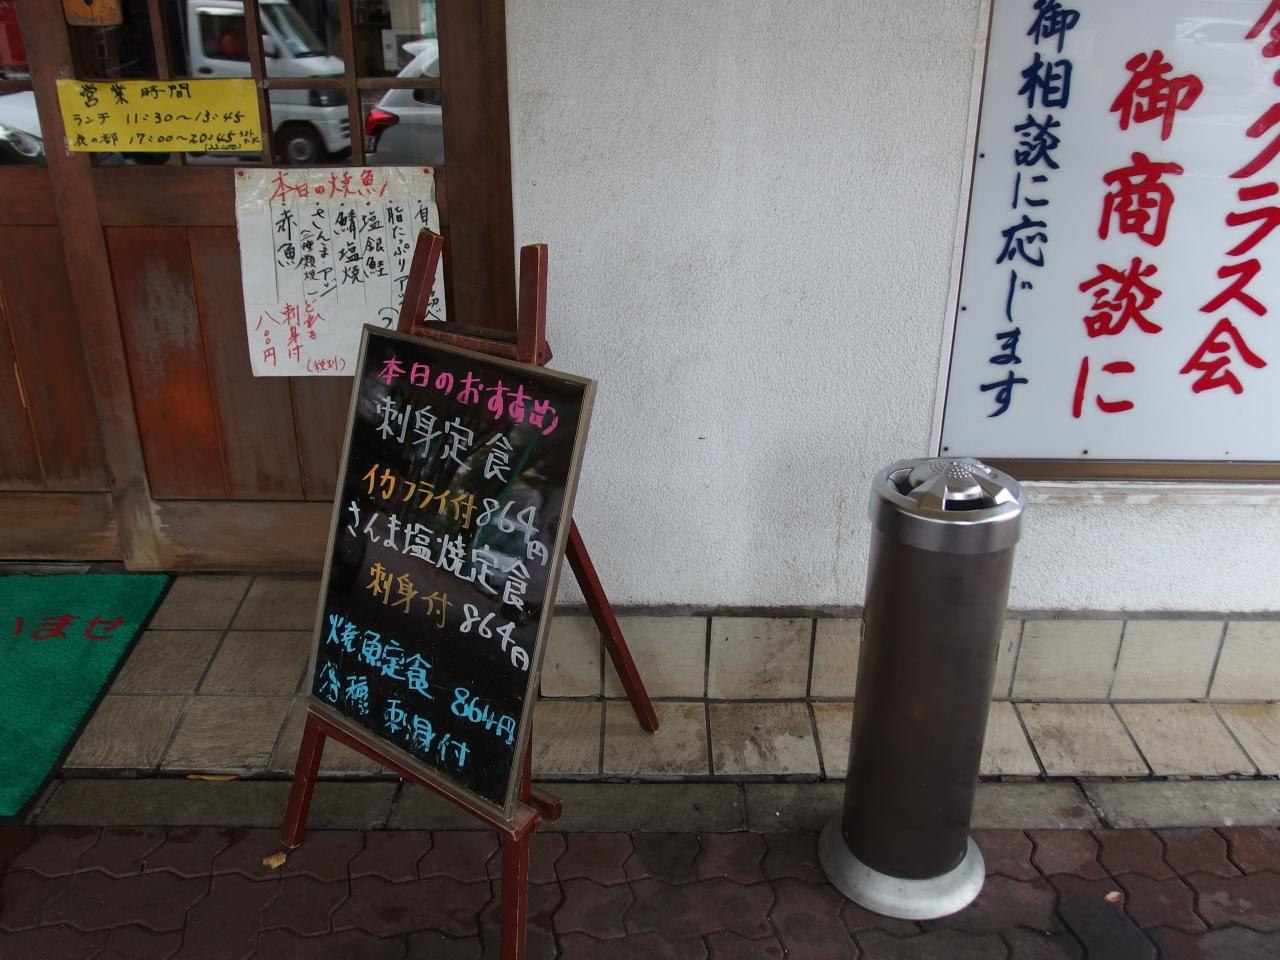 営業時間
ランチ 11:30～13:45
夜の部 17:00～20:45
本日の焼魚
脂たぷり
塩銀鮭
鯖塩焼
さんま
赤魚
どれも
刺身付
八〇〇円
(税別)
本日のおすすめ
刺身定食
イカフライ付 864円
さんま塩焼定食
刺身付 864円
焼魚定食 864円
各種 刺身付
いませ
クラス会
御商談に
御相談に応じます